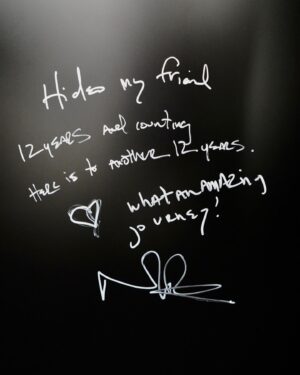 Hideo my friend
12 years and counting
Here is to another 12 years.
what an amazing
journey!